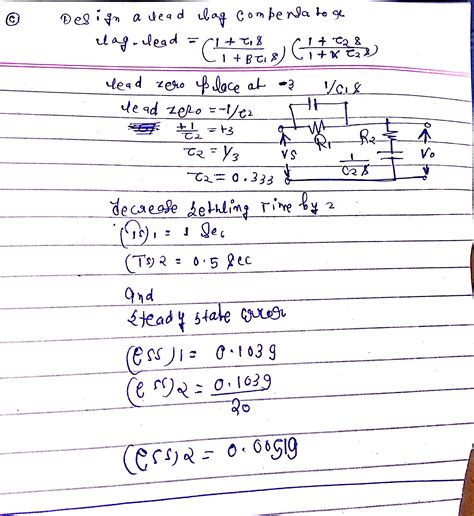 © Design a lead lag compensator
lag-lead = (1+τ1s / 1+βτ1s) (1+τ2s / 1+∝τ2s)
lead zero place at -3
1/C1s
lead zero = -1/τ2
+1/τ2 = +3
τ2 = 1/3
τ2 = 0.333
R1
R2
Vs
1/C2s
Vo
decrease settling time by 2
(Ts)1 = 1 Sec
(Ts)2 = 0.5 Sec
and
steady state error
(ess)1 = 0.1039
(ess)2 = 0.1039/20
(ess)2 = 0.00519